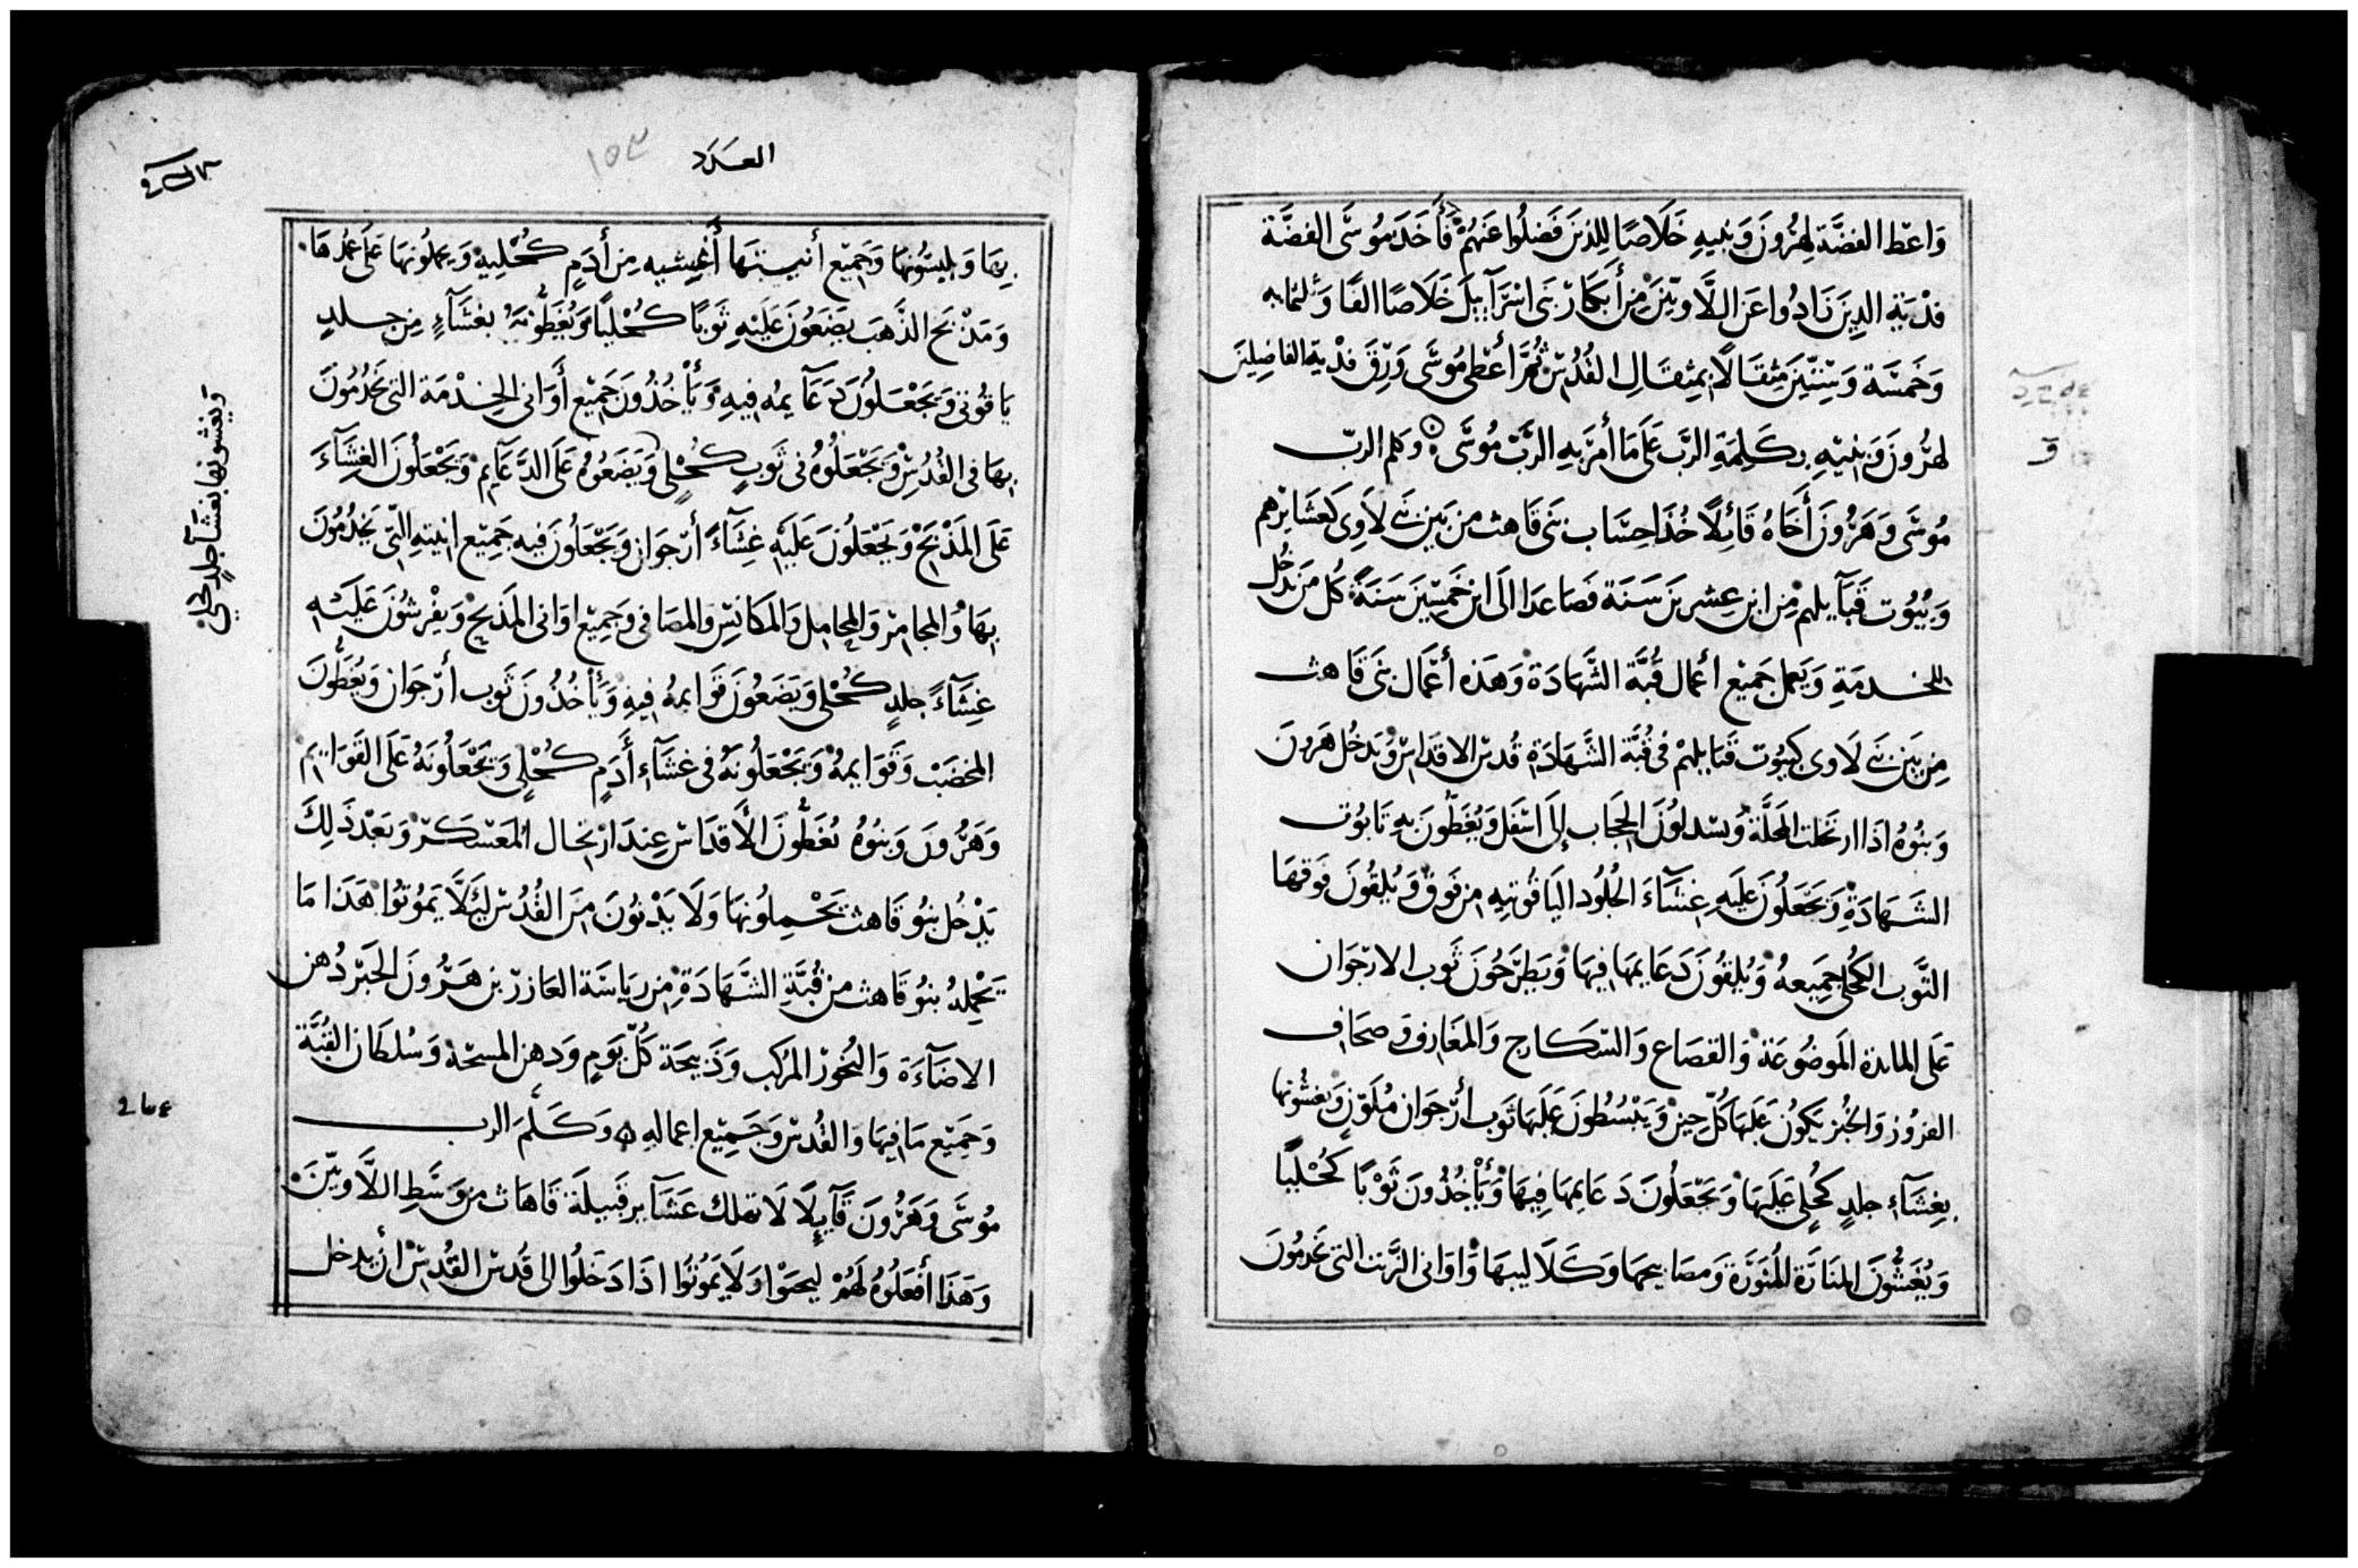 وَاعْط الفضَّة لِهرُونَ وَبنيهِ خَلَاصًا لِلذينَ فَضلُوا عَنهُمْ فَأَخَدَ مُوسَى الفضَّة
فدْيَة الدِينَ زَادُوا عَن اللَّاويّينَ مِن أَبكَارْ بَنى اسْرَآييلَ خَلَاصًا الفًا وَثلثمايه
وَخَمسَة وَسِتِّينَ مِثقَالًا بمِثقَالِ القُدُسْ ثُمَّ أعْطى مُوسَى وَرِقَ فدْية الفاضِلِينَ
لهرُّونَ وَبَنيْهِ بكَلِمَةِ الربّ عَلى مَا أمَرَ بهِ الرَّبّ مُوسَى وكلم الربّ
مُوسَى وَهَرُونَ أَخَاهُ قَائِلًا خُذَا حِسَاب بَنى قَاهث من بَين بَنى لَاوِى كَعَشَائِرهم
وَبُيُوت قَبَآيلهم مْن ابن عِشرينَ سَنَة فَصَاعدَا الَى ابْن خَمسِينَ سَنَةً كُل مَن يَدْخُل
للخدمَةِ وَيَعمل جَميْع أعمال قُبَّة الشَّهَادَة وَهَذه أعْمَال بنَى قَاهث
مِن بَين بَنى لَاوى كبيُوت قَبَايلهمْ فى قُبَّة الشَّهَادَة قُدسْ الاقدَاسْ وَيَدخُل هَرونَ
وَبنُوهُ اذَا ارتحَلت المحَلَّة وَيسْدلوُنَ الحِجَاب إلَى اسْفَل وَيُغَطُّونَ بهِ تَابُوت
الشَهَادَةِ وَيَجْعَلُونَ عَليَه غِشَآءَ الجُلُود اليَاقُوتيه من فَوق وَيُلقُونَ فَوقهَا
الثَّوب الكُحلى جَمِيعهُ وَيُلقُونَ دَعَايمهَا فيهَا وَيَطرَحُونَ ثَوب الارْجَوان
عَلَى المائدة المَوضُوعَة وَالقصَاع وَالسّكَارج وَالمغَارف وَصحَاف
الفرُوز وَالخُبز يَكوُن عَلَيهَا كُلّ حِين وَيَبْسُطُونَ عَليَهَا ثَوب ارْجَوان مُلوَّن وَيغشُونهَا
بغِشَآء جلدٍ كُحْلى عَلَيهَا وَيَجْعَلُونَ دَعَايمهَا فيهَا وَيَأْخُذُونَ ثَوْبًا كُحْليًا
وَيُغَشُّونَ المنَارَة المُنَورَة وَمصَابيحهَا وَكَلَاليبهَا وَاوَانى الزَّيت التى يَخدمُونَ
العـدد
١٥٣
بِهَا وَيلبسُونهَا وَجَميْع أنيَتهَا أَغْشيه مِن أَدَمٍ كُحْليه وَيحملُونهَا عَلى عمُدهَا
وَمَذْبَح الذّهَبَ يَضَعُونَ عَليْهِ ثَوبًا كُحْليًا وَيُغَطُّونَهُ بغشَآءٍ مِن جلدٍ
يَاقُوتى وَيَجْعَلُونَ دَعَآيمُه فيهِ وَيَأْخُذُونَ جَميْع أَوَانى الخِدْمَة التى يَخدُمُونَ
بهَا فى القُدُسْ وَيَجْعَلُوهُ فى ثَوبٍ كُحْلى وَيَضَعُوهُ عَلَى الدَّعَآيم وَيَجْعَلُونَ الغِشَآءَ
عَلَى المَذْبَحْ وَيَجْعَلُونَ عَليَهِ غِشَآءً أرْجَوان وَيَجْعَلُونَ فيه جَميْع انيَتهِ التّى يَخدُمُونَ
بهَا وَالمجَامرْ وَالمحَامل وَالمكَانسْ وَالمصَافى وَجَميْع اوَانى المَذبَح وَيفْرشُونَ عَليَهِ
غِشَآءً جلدٍ كُحْلى وَيَضَعُونَ قَوَايمهُ فيهِ وَيَأخُذُونَ ثَوب أرْجَوان وَيُغَطُّونَ
المخضَبْ وَقَوَايمهُ وَيَجْعَلُونَهُ فى غشَآء أَدَمٍ كُحْلى وَيَجْعَلُونَهُ عَلَى القَوَايم
وَهَرُّونَ وَبنُوهُ يُغَطُّونَ الأَقدَاسْ عِندَ ارتحَال المعَسْكَرْ وَبَعْد ذَلِكَ
يَدْخُل بنُو قَاهث يَحْملُونهَا وَلَا يَدْنُونَ مِنَ القُدُسْ لِئَلَّا يَمُوتُوا هَذَا مَا
يَحْملهُ بنُو قَاهث من قُبَّةِ الشَّهَادَةِ مِن رَيَاسَة العَازرْ بن هَرُّونَ الحَبْر دُهن
الاضَآءَة وَالبُخورْ المركب وَذَبيحَة كُلّ يَومٍ وَدهن المسحَة وَسُلطَان القُبَّة
وَجَميْع مَا فيهَا وَالقُدسْ وَجَميْع اعماله وَكَلَّمَ الرب
مُوسَى وَهَرُونَ قَآيلًا لَا تهلك عَشَآير قَبيلَة قَاهَاث من وَسَط اللَّاويّينَ
وَهَذَا أفعَلُوهُ لَهُمْ ليحيَوْا وَلَا يَمُوتُوا اذَا دَخَلُوا الى قُدسْ القُدسْ ان يدخل
ويغشونها بغشآ جلد كحلى